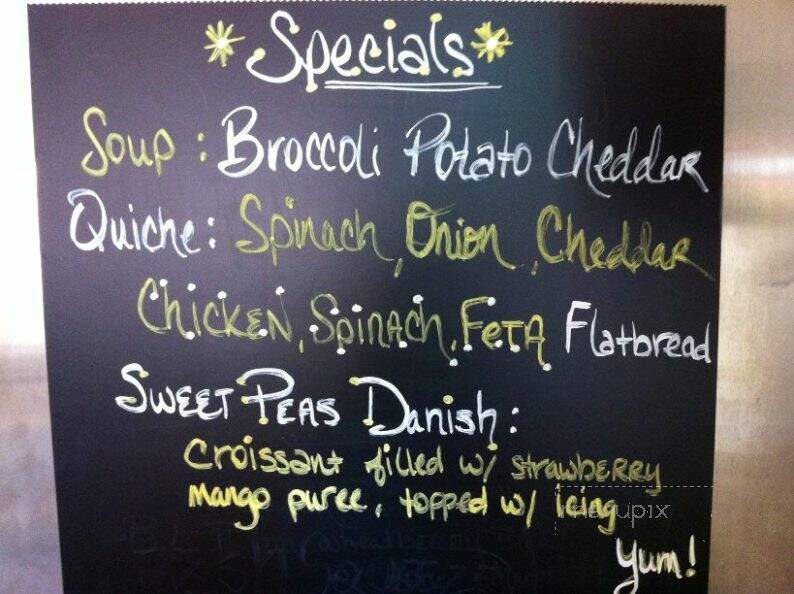 *Specials*
Soup : Broccoli Potato Cheddar
Quiche: Spinach, Onion, Cheddar
Chicken, Spinach, Feta Flatbread
Sweet Peas Danish:
croissant filled w/ strawberry
mango puree, topped w/ Icing
Yum!